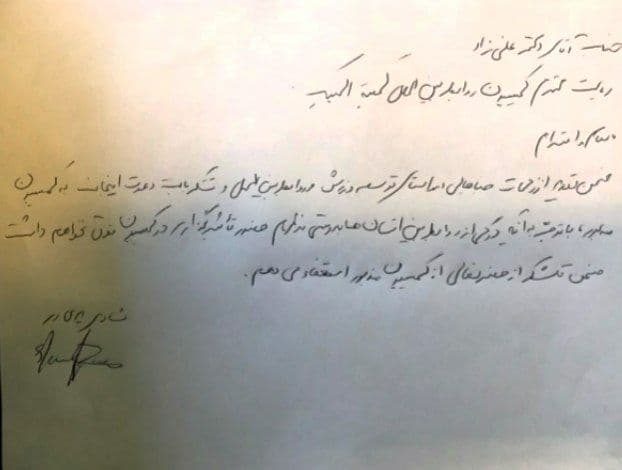 جناب آقای دکتر علی نژاد
ریاست محترم کمیسیون روابط بین الملل کمیته المپیک
با سلام و احترام
ضمن تقدیر از زحمات جنابعالی در راستای توسعه ورزش و روابط بین الملل و تشکر بابت دعوت اینجانب به کمیسیون
مذبور، با توجه به آنکه درکی از روابط بین انسان ها به درستی ندارم حضور تأثیرگذاری در کمیسیون فوق نخواهم داشت
ضمن تشکر از حضرتعالی از کمیسیون مذبور استعفا می دهم.